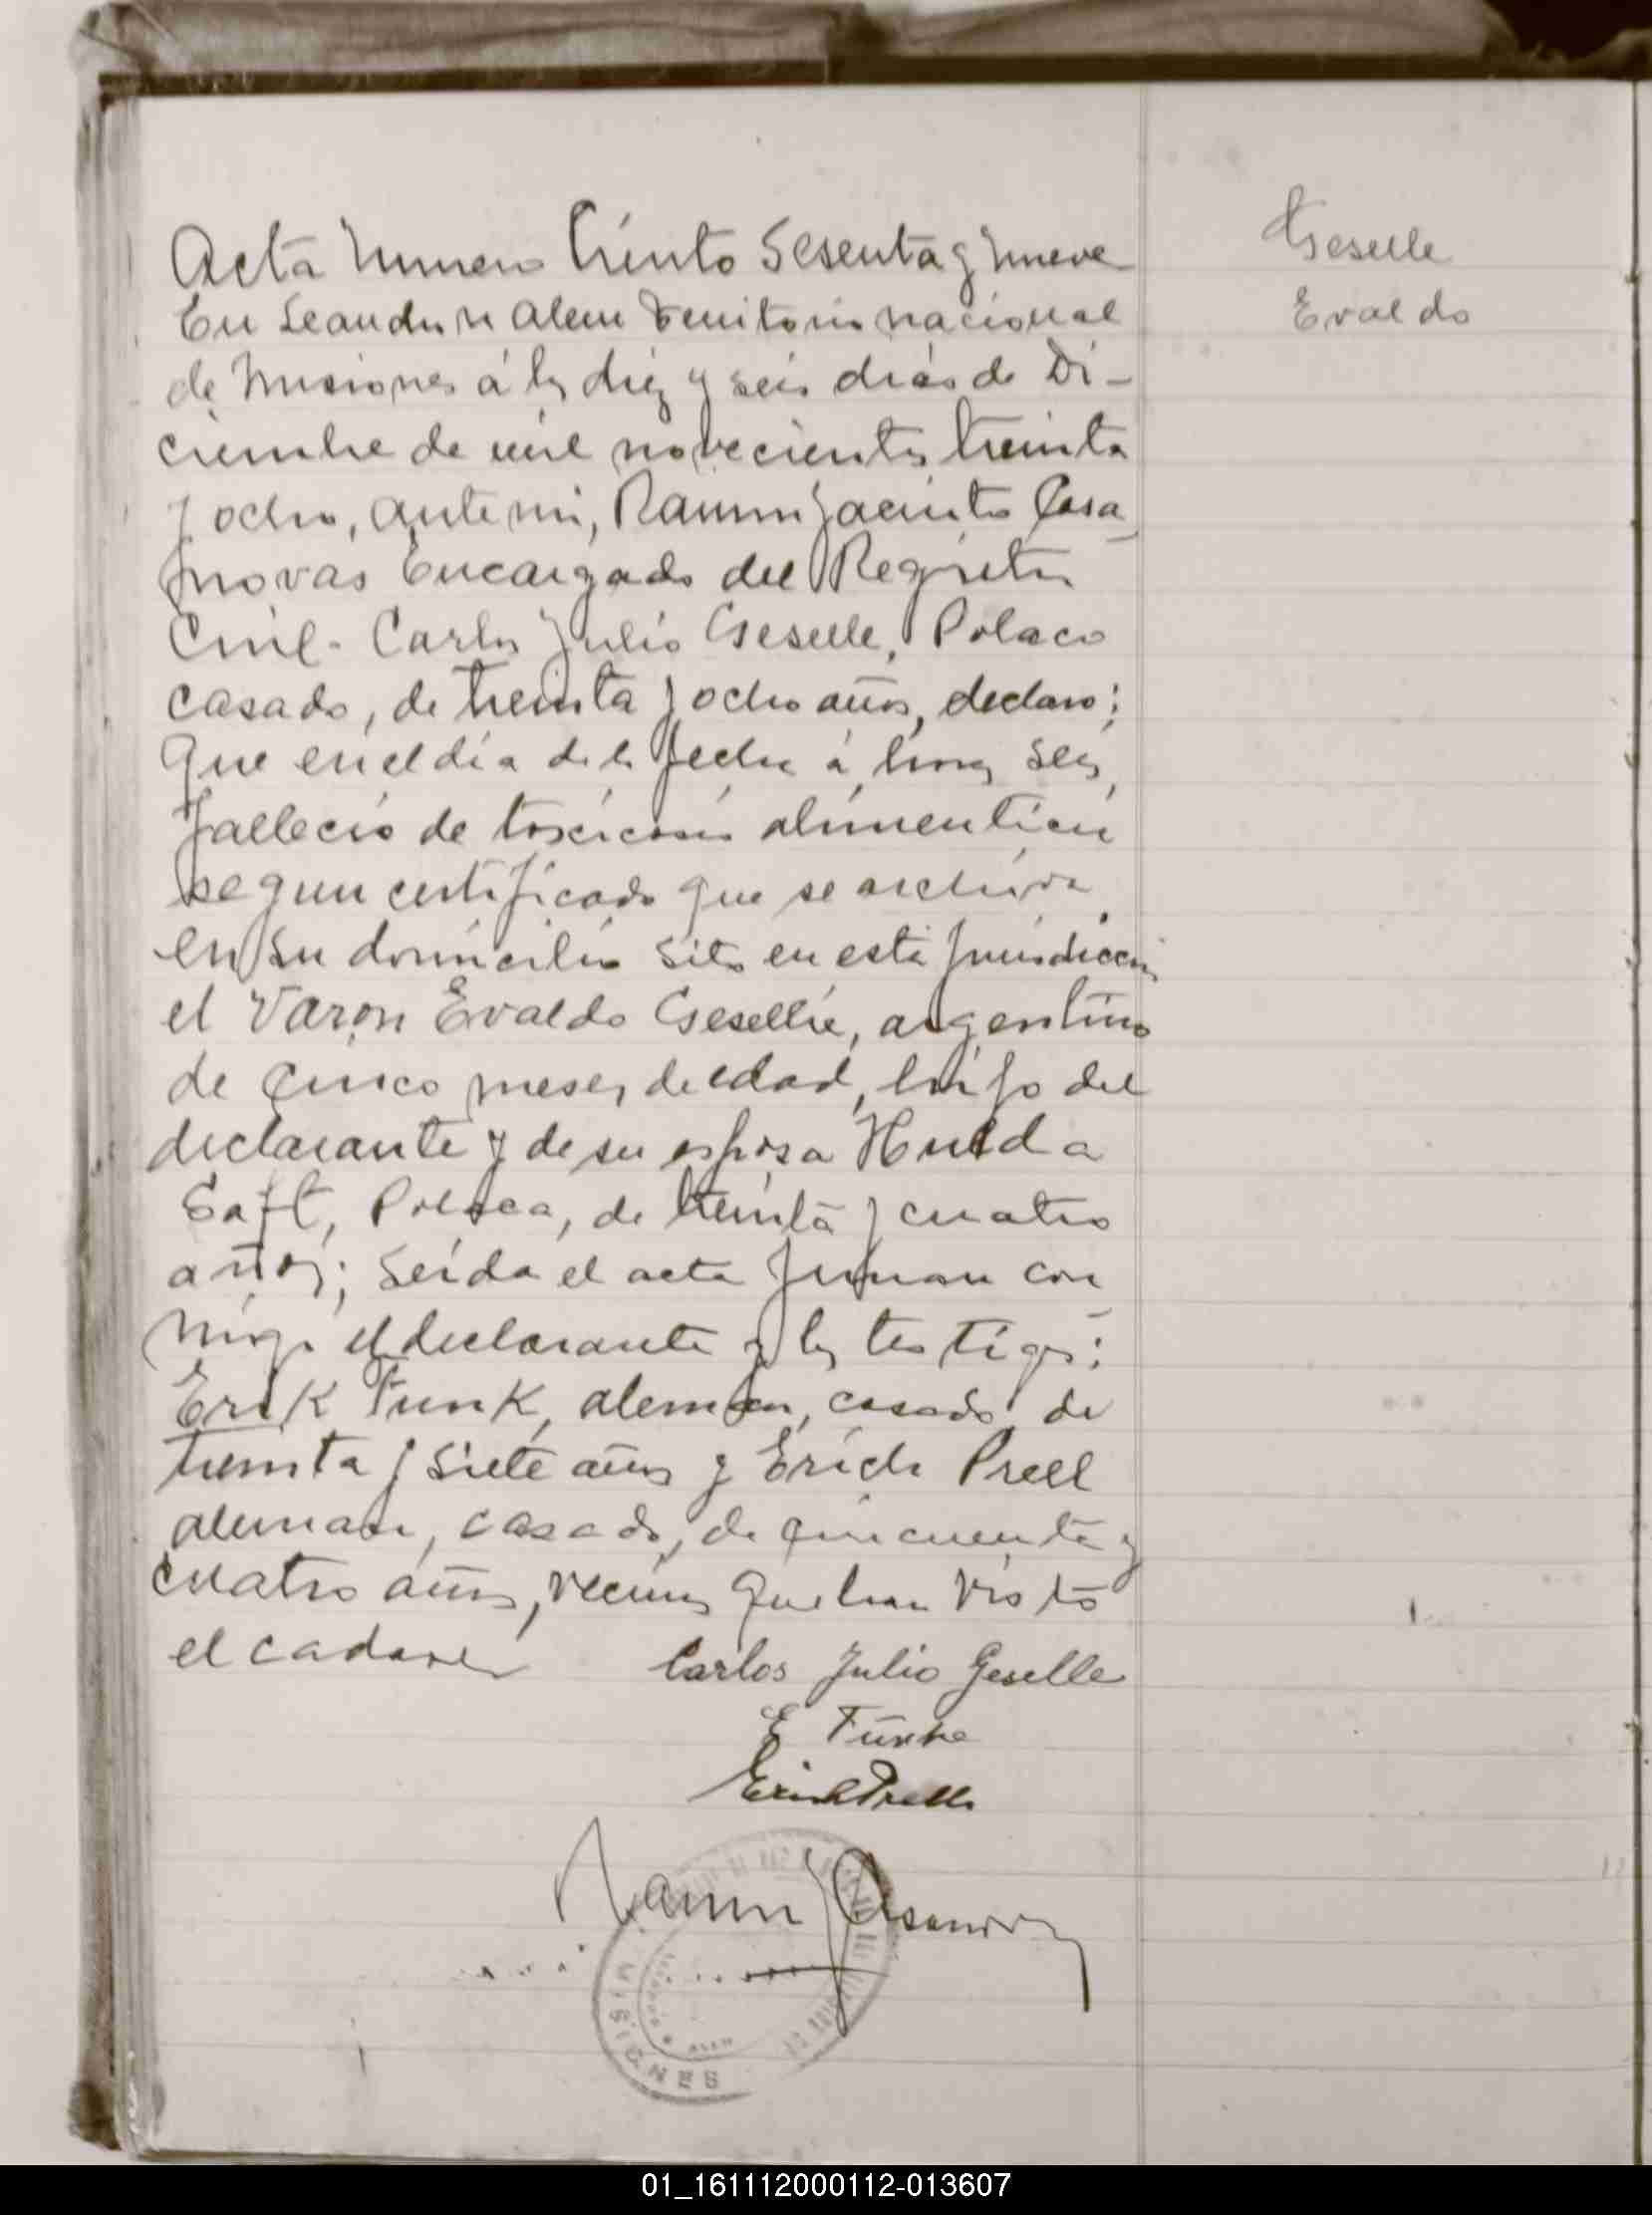 Acta Numero Ciento Sesenta y Nueve
Geselle
Evaldo
En Leandro N Alem Territorio nacional
de Misiones á los diez y seis dias de Di-
ciembre de mil novecientos treinta
y ocho, ante mi, Ramon Jacinto Casa
novas Encargado del Registro
Civil - Carlos Julio Geselle, Polaco
casado, de treinta y ocho años, declaro:
Que en el dia de la fecha á horas seis,
falleció de toxicosis alimenticia
segun certificado que se archiva
en su domicilio sito en esta jurisdiccion
el Varon Evaldo Gesellie, argentino
de cinco meses de edad, hijo del
declarante y de su esposa Hulda
Saft, Polaca, de treinta y cuatro
años; Leida el acta firman con
migo el declarante y los testigos:
Erik Funk, aleman, casado de
treinta y siete años y Erich Prell
aleman, casado, de cincuenta y
cuatro años, vecinos que han visto
el cadaver
Carlos Julio Geselle
E Funke
Erich Prell
Ramon J Casanovas
MISIONES
01_161112000112-013607